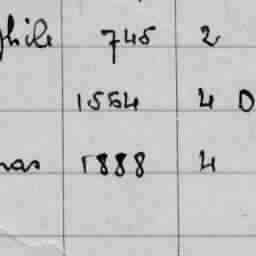 phile 745 2
1554 4 0
nas 1888 4